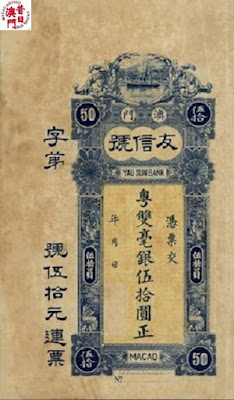 昔日澳門
50
伍拾
澳門
友信號
YAU SUN BANK
憑票交
粵雙毫銀伍拾圓正
年月日
伍拾圓
伍拾圓
字第 號伍拾元連票
伍拾
MACAO
50
Nº